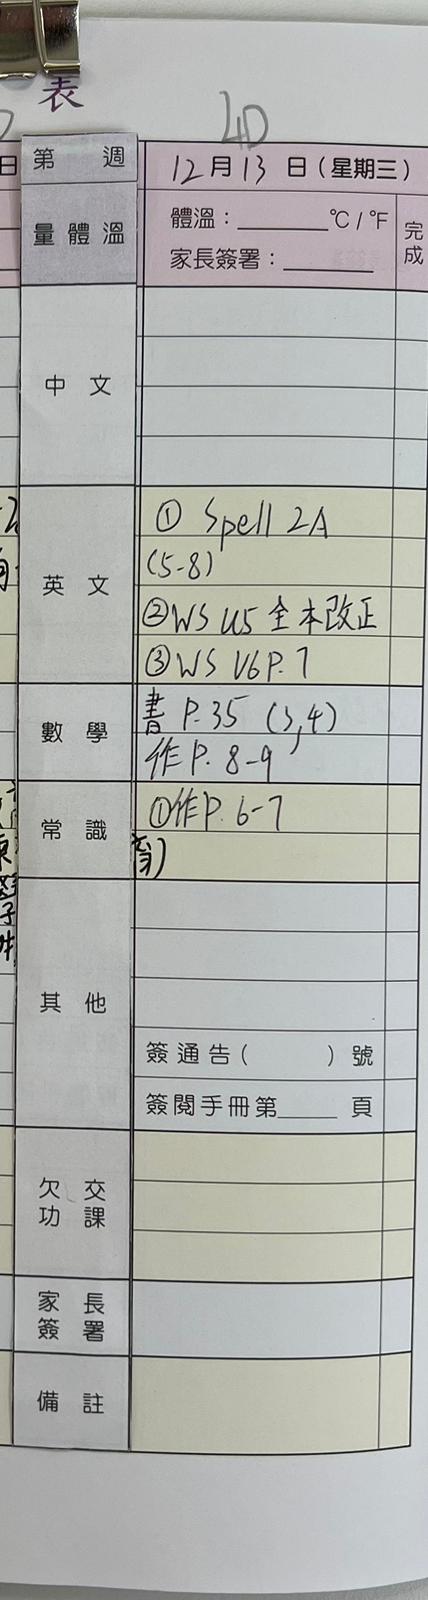 表
4D
第 週
12月13日(星期三)
量體溫
體溫：______°C/°F
家長簽署：______
完成
中文
英文
① Spell 2A
(5-8)
② WS U5 全本改正
③ WS U6 P.7
數學
書 P.35 (3,4)
作 P. 8-9
常識
① 作 P. 6-7
育)
其他
簽通告( )號
簽閱手冊第____頁
欠交功課
家長簽署
備註